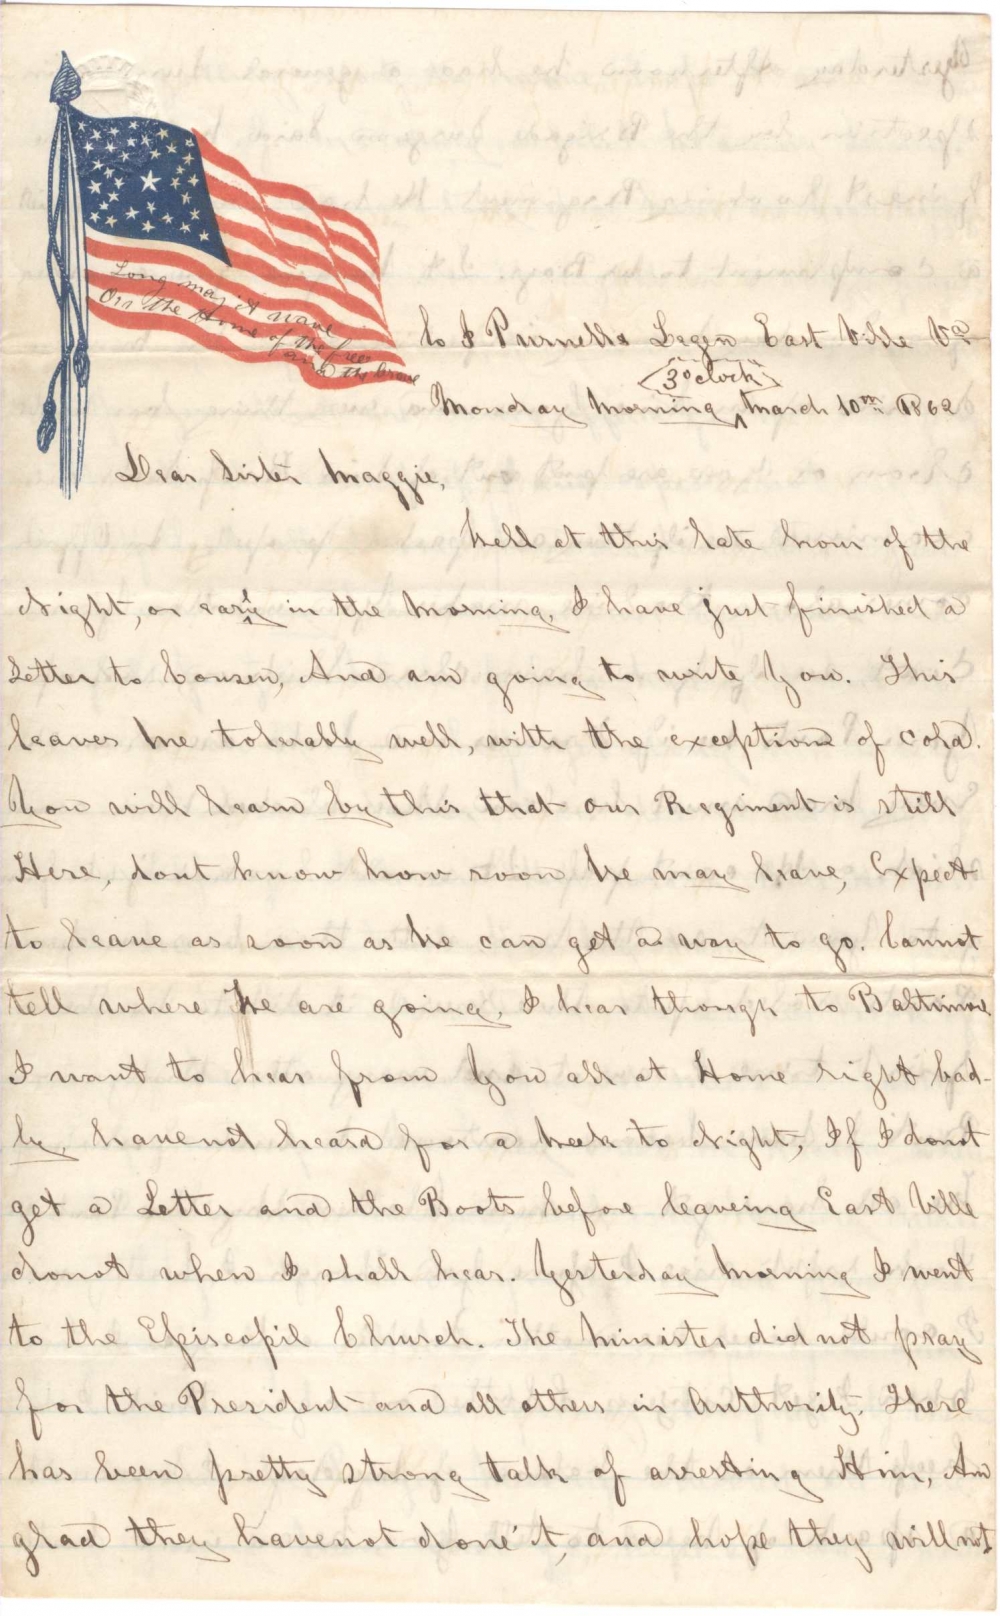 Long may it wave
Ore the Home of the free
and the brave
Co I Purnells Legen East Ville Va
3 o'clock
Monday Morning ^ March 10th 1862
Dear Sister Maggie,
Well at this late hour of the
Night, or eary in the Morning, I have just finished a
Letter to Cousen, And am going to write You. This
leaves Me tolerably well, with the exception of cold.
You will learn by this that our Regiment is still
Here, dont know how soon We may leave, Expect
to leave as soon as We can get a way to go. Cannot
tell where We are going, I hear though to Baltimore
I want to hear from You all at Home right bad-
ly, havenot heard for a Week to Night, If I donot
get a Letter and the Boots before leaveing East Ville
donot when I shall hear. Yesterday Morning I went
to the Episcopil Church. The Minister did not pray
for the President and all others in Authority. There
has been pretty strong talk of arresting Him, Am
glad they havenot done it, and hope they will not